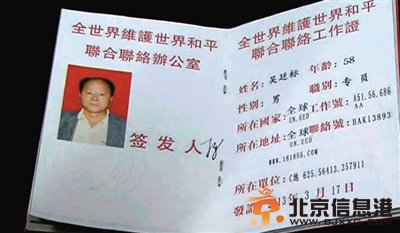 全世界維護世界和平
聯合聯絡辦公室
签发人
全世界維護世界和平
聯合聯絡工作證
姓名: 吴廷标 年龄: 58
性别: 男 職别: 专員
所在國家: 全球工作號: A51.56.686
UN.UED AA
所在地址: 全球聯絡號: BAK13893
UN.UED
www.181855.com
所在單位: C地 625.56413.357911
發證 13年 3月 17日
北京信息港